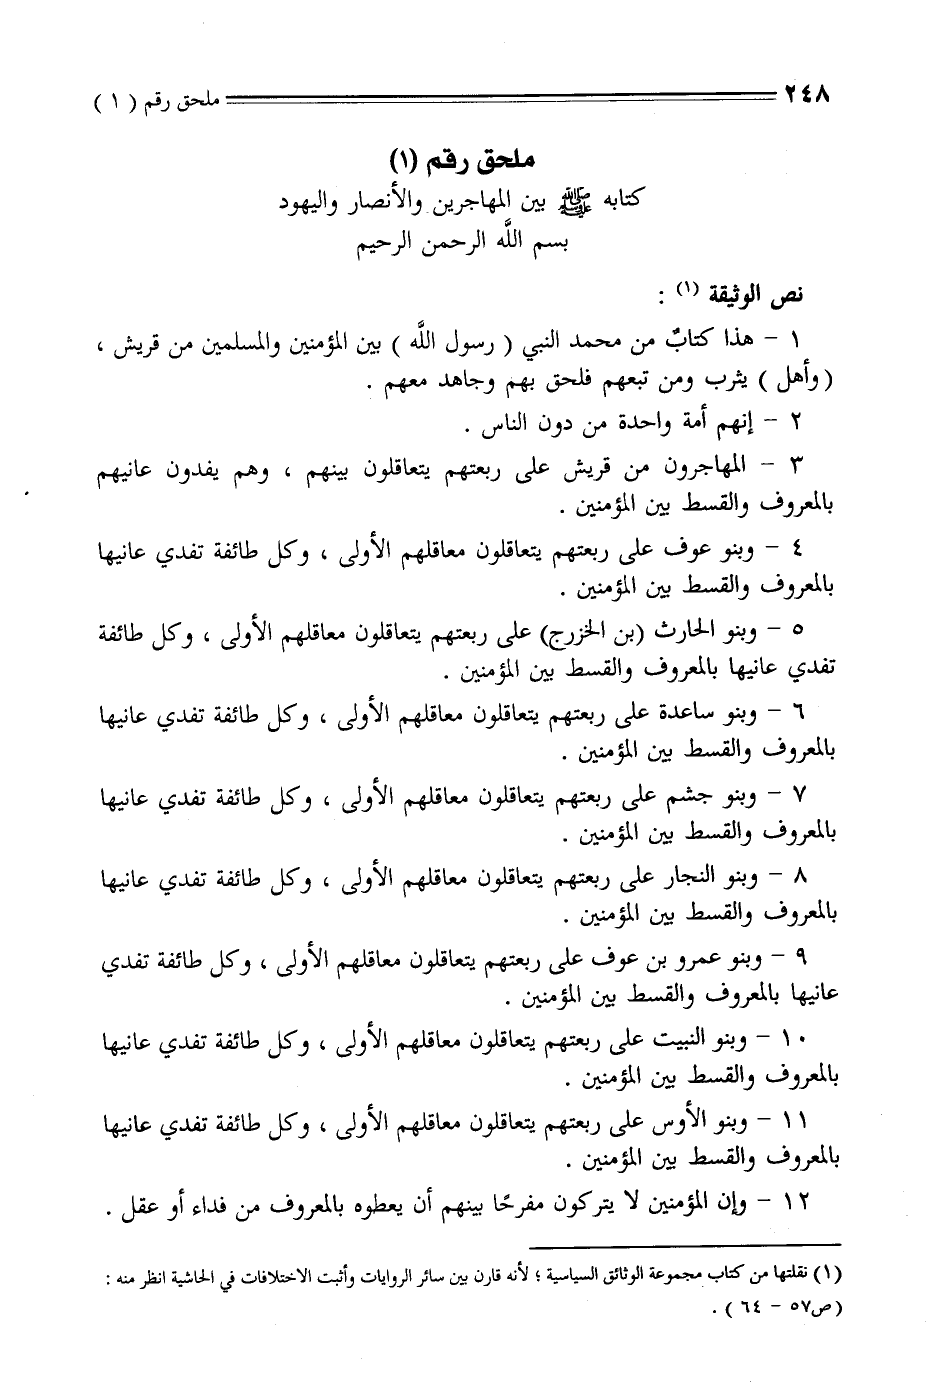 ٢٤٨ ملحق رقم ( ١ )
ملحق رقم (١)
كتابه ﷺ بين المهاجرين والأنصار واليهود
بسم اللَّه الرحمن الرحيم
نص الوثيقة (١) :
١ - هذا كتابٌ من محمد النبي ( رسول اللَّه ) بين المؤمنين والمسلمين من قريش ،
( وأهل ) يثرب ومن تبعهم فلحق بهم وجاهد معهم .
٢ - إنهم أمة واحدة من دون الناس .
٣ - المهاجرون من قريش على ربعتهم يتعاقلون بينهم ، وهم يفدون عانيهم
بالمعروف والقسط بين المؤمنين .
٤ - وبنو عوف على ربعتهم يتعاقلون معاقلهم الأولى ، وكل طائفة تفدي عانيها
بالمعروف والقسط بين المؤمنين .
٥ - وبنو الحارث (بن الخزرج) على ربعتهم يتعاقلون معاقلهم الأولى ، وكل طائفة
تفدي عانيها بالمعروف والقسط بين المؤمنين .
٦ - وبنو ساعدة على ربعتهم يتعاقلون معاقلهم الأولى ، وكل طائفة تفدي عانيها
بالمعروف والقسط بين المؤمنين .
٧ - وبنو جشم على ربعتهم يتعاقلون معاقلهم الأولى ، وكل طائفة تفدي عانيها
بالمعروف والقسط بين المؤمنين .
٨ - وبنو النجار على ربعتهم يتعاقلون معاقلهم الأولى ، وكل طائفة تفدي عانيها
بالمعروف والقسط بين المؤمنين .
٩ - وبنو عمرو بن عوف على ربعتهم يتعاقلون معاقلهم الأولى ، وكل طائفة تفدي
عانيها بالمعروف والقسط بين المؤمنين .
١٠ - وبنو النبيت على ربعتهم يتعاقلون معاقلهم الأولى ، وكل طائفة تفدي عانيها
بالمعروف والقسط بين المؤمنين .
١١ - وبنو الأوس على ربعتهم يتعاقلون معاقلهم الأولى ، وكل طائفة تفدي عانيها
بالمعروف والقسط بين المؤمنين .
١٢ - وإن المؤمنين لا يتركون مفرحًا بينهم أن يعطوه بالمعروف من فداء أو عقل .
(١) نقلتها من كتاب مجموعة الوثائق السياسية ؛ لأنه قارن بين سائر الروايات وأثبت الاختلافات في الحاشية انظر منه :
( ص٥٧ - ٦٤ ) .